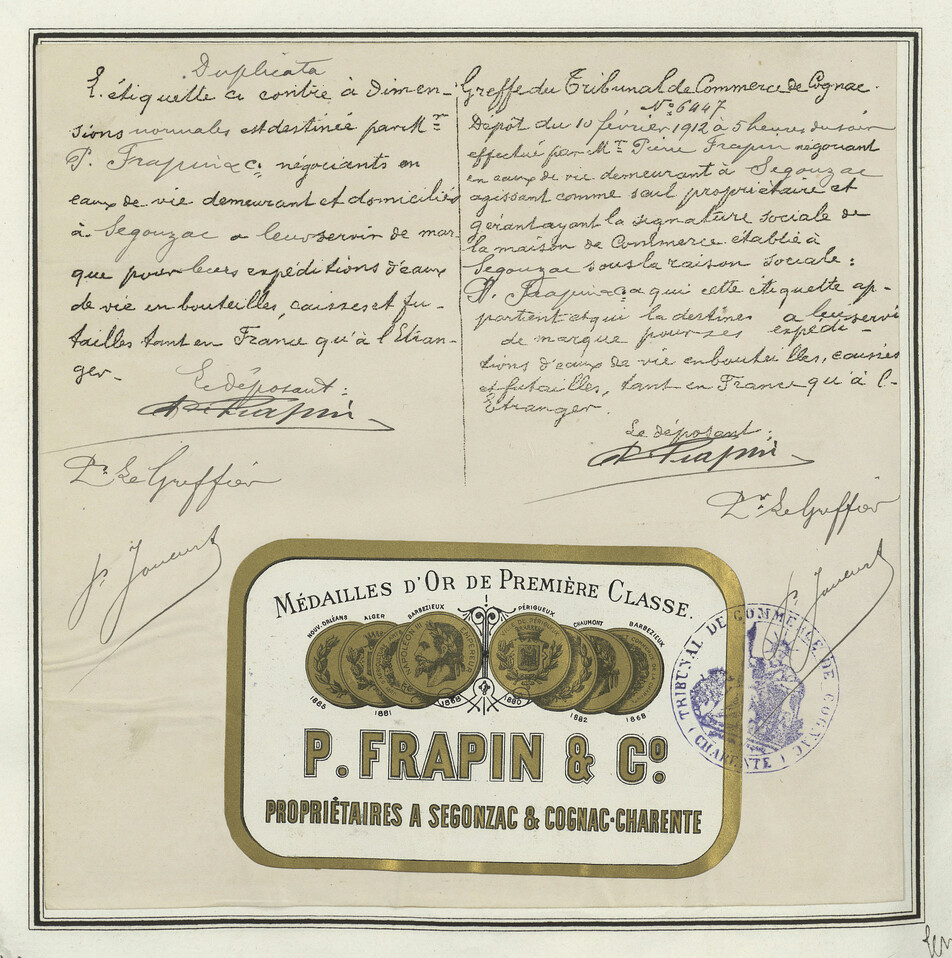 Duplicata
L'étiquette ci contre à dimen-
sions normales est destinée par Mr
P. Frapin & Co négociants en
eaux de vie demeurant et domiciliés
à Segonzac a leur servir de mar-
que pour leurs expéditions d'eaux
de vie en bouteilles, caisses et fu-
tailles tant en France qu'à l'Etran-
ger.
Le déposant:
P. Frapin
Pr Le Greffier
Greffe du Tribunal de Commerce de Cognac.
No 6447
Dépôt du 10 février 1912 à 5 heures du soir
effectué par Mr Pierre Frapin négociant
en eaux de vie demeurant à Segonzac
agissant comme seul propriétaire et
gérant ayant la signature sociale de
la maison de Commerce établie à
Segonzac sous la raison sociale:
P. Frapin & Co a qui cette étiquette ap-
partient et qui la destine a leur servi
de marque pour ses expédi-
tions d'eaux de vie en bouteilles, caisses
et futailles, tant en France qu'à l'
Etranger.
Le déposant:
P. Frapin
Pr Le Greffier
MÉDAILLES D'OR DE PREMIÈRE CLASSE.
NOUV-ORLÉANS ALGER BARBEZIEUX PÉRIGUEUX CHAUMONT BARBEZIEUX
NAPOLÉON III EMPEREUR
1885 1881 1868 1880 1882 1868
P. FRAPIN & Co.
PROPRIÉTAIRES A SEGONZAC & COGNAC-CHARENTE
TRIBUNAL DE COMMERCE DE COGNAC
(CHARENTE)